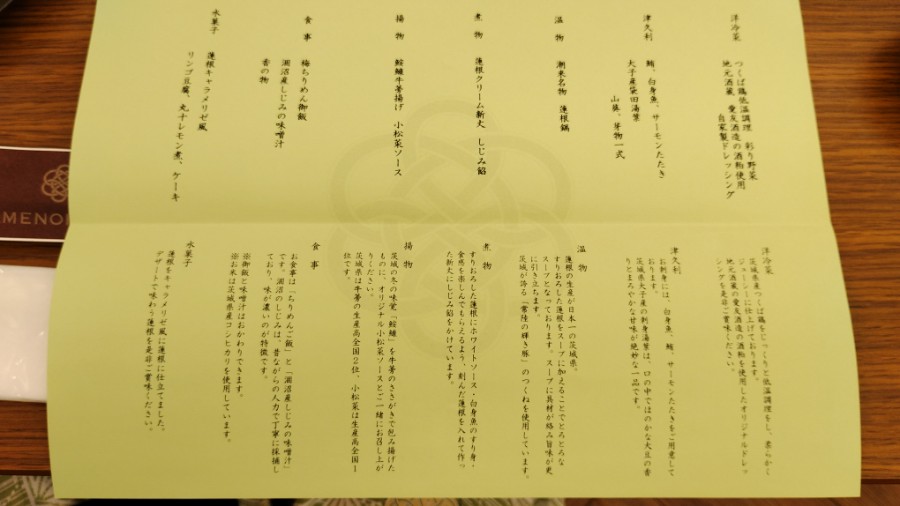 洋冷菜
つくば鶏低温調理 彩り野菜
地元酒蔵 愛友酒造の酒粕使用
自家製ドレッシング
津久利
鮪、白身魚、サーモンたたき
大子産袋田湯葉
山葵、芽物一式
温物
潮来名物 蓮根鍋
煮物
蓮根クリーム新丈 しじみ餡
揚物
鮟鱇牛蒡揚げ 小松菜ソース
食事
梅ちりめん御飯
涸沼産しじみの味噌汁
香の物
水菓子
蓮根キャラメリゼ風
リンゴ豆腐、丸十レモン煮、ケーキ
洋冷菜
茨城県産つくば鶏をじっくりと低温調理をし、柔らかく
ジューシーに仕上げております。
地元酒蔵の愛友酒造の酒粕を使用したオリジナルドレッ
シングを是非ご賞味ください。
津久利
お刺身には、白身魚、鮪、サーモンたたきをご用意して
おります。
茨城県大子産の刺身湯葉は、口の中でほのかな大豆の香
りとまろやかな甘味が絶妙な一品です。
温物
蓮根の生産が日本一の茨城県。
すりおろした蓮根をスープに加えることでとろとろな
スープとなっております。スープに具材が絡み旨味が更
に引き立ちます。
茨城が誇る「常陸の輝き豚」のつくねを使用しています。
煮物
すりおろした蓮根にホワイトソース・白身魚のすり身・
食感を楽しんでもらえるよう、刻んだ蓮根を入れて作っ
た新丈にしじみ餡をかけています。
揚物
茨城の冬の味覚「鮟鱇」を牛蒡のささがきで包み揚げた
ものに、オリジナル小松菜ソースとご一緒にお召し上が
りください。
茨城県は牛蒡の生産高全国2位、小松菜は生産高全国1
位です。
食事
お食事は「ちりめんご飯」と「涸沼産しじみの味噌汁」
です。涸沼のしじみは、昔ながらの人力で丁寧に採捕し
ており、味が濃いのが特徴です。
※御飯と味噌汁はおかわりできます。
※お米は茨城県産コシヒカリを使用しています。
水菓子
蓮根をキャラメリゼ風に蓮根に仕立てました。
デザートで味わう蓮根を是非ご賞味ください。